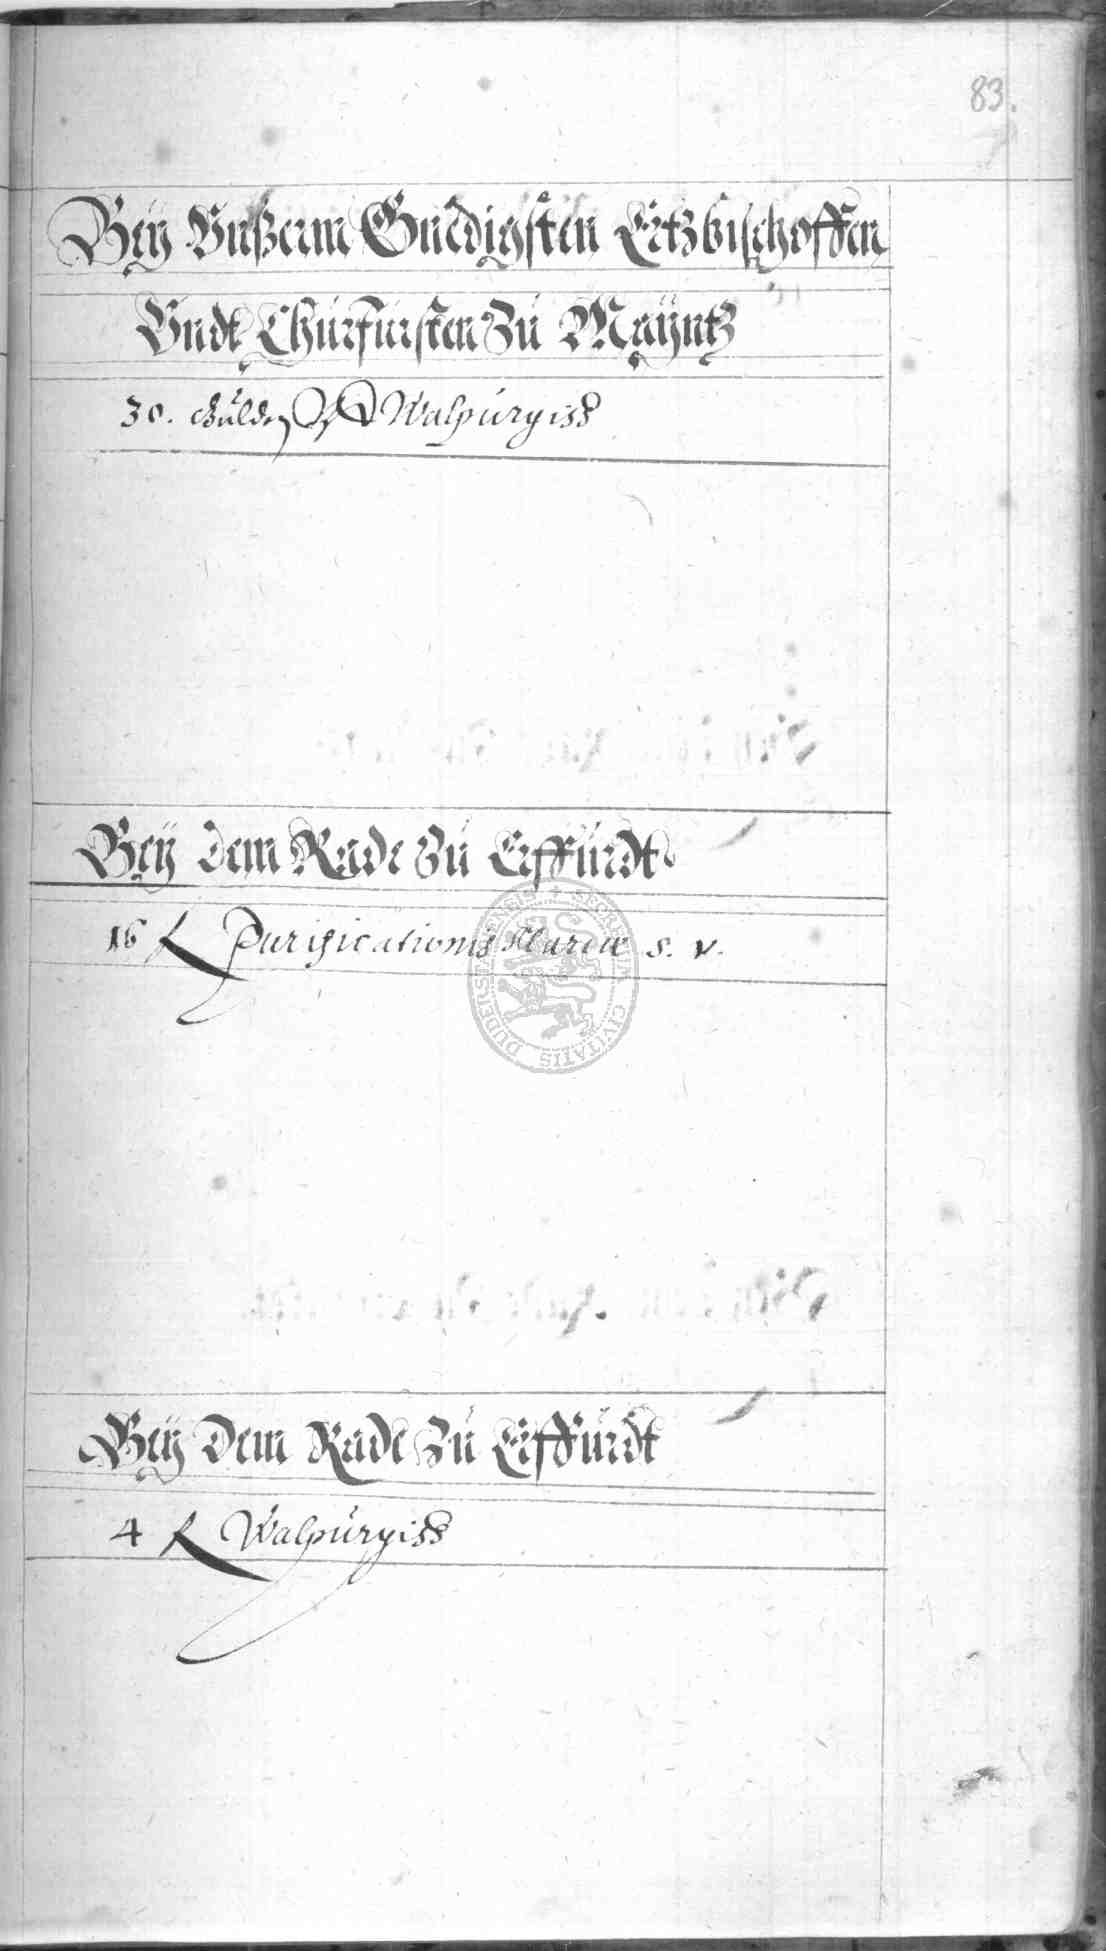 83.
Bey Vnßerm Gnedigsten Ertzbischoffen
Vndt Churfürsten Zu Mäyntz
30. Gülden Walpurgiss
Bey dem Rade Zu Erffurdt
16 fl Purificationis Mariæ s. v.
SECRETUM CIVITATIS DUDERSTADENSIS
Bey Dem Rade Zu Erffurdt
4 fl Walpurgiss